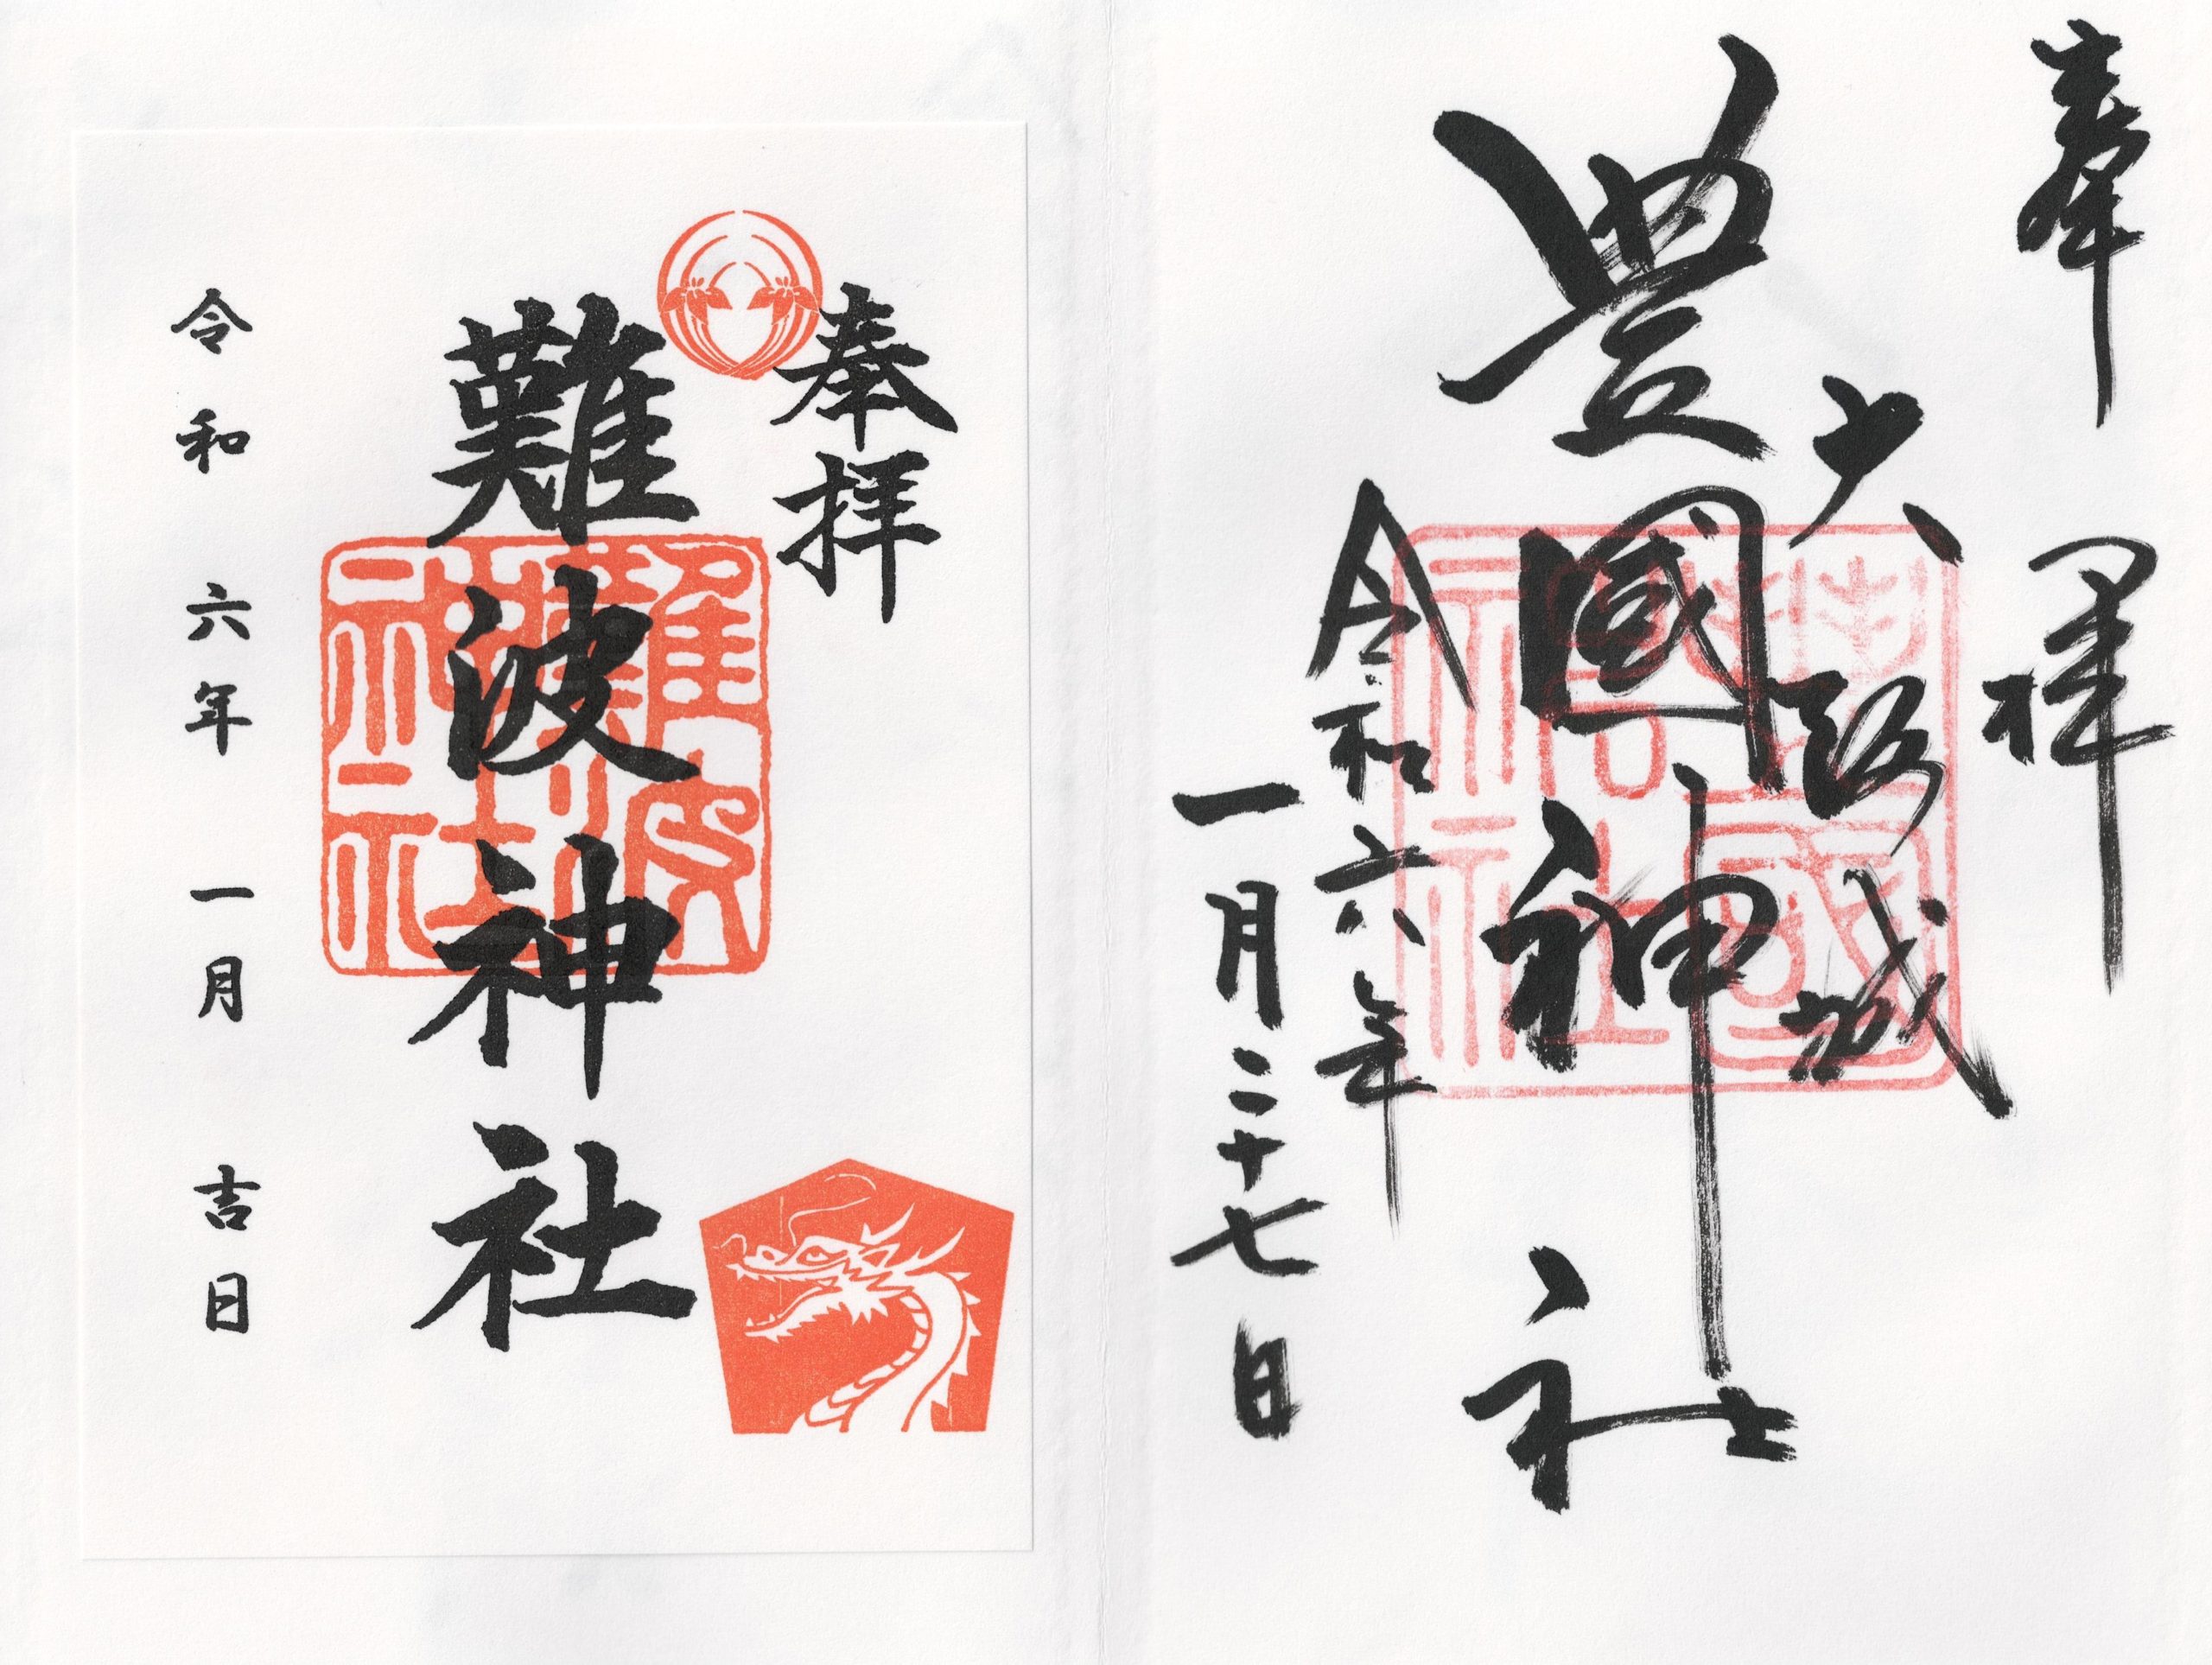 奉拝
大阪城
豊國神社
令和六年
一月二十七日
奉拝
難波神社
令和六年一月吉日
難波神社